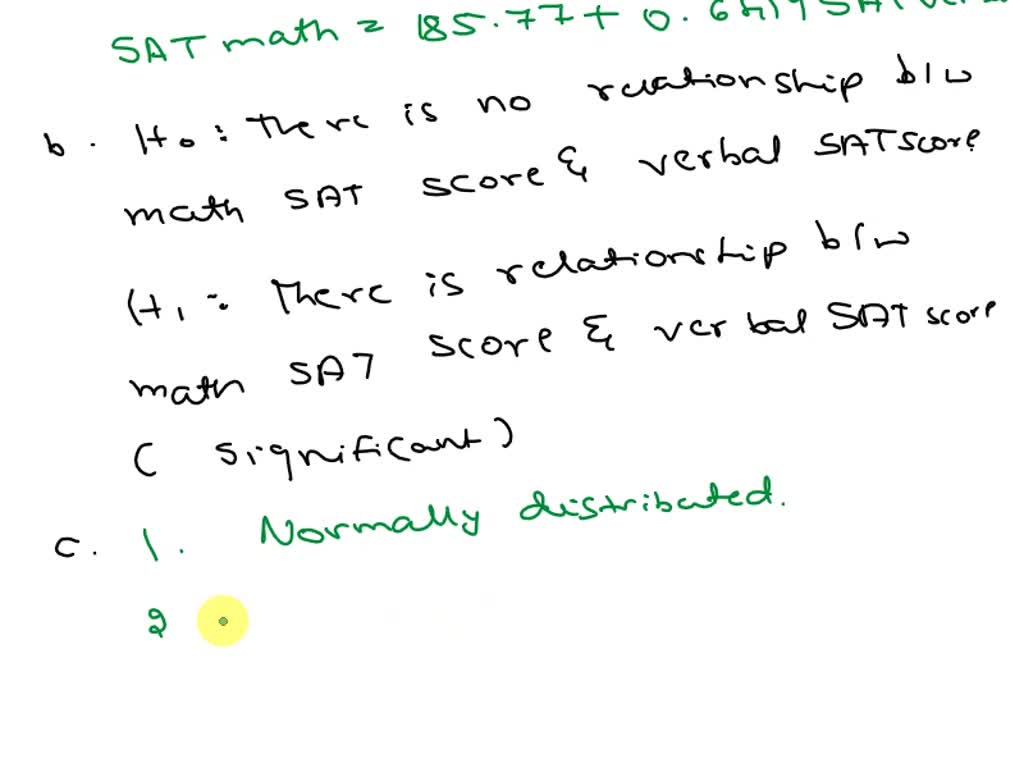 SAT math = 185.77 + 0.
b. H0: There is no relationship b/w
math SAT score & verbal SAT score
H1: There is relationship b/w
math SAT score & verbal SAT score
( significant )
c. 1. Normally distributed.
2